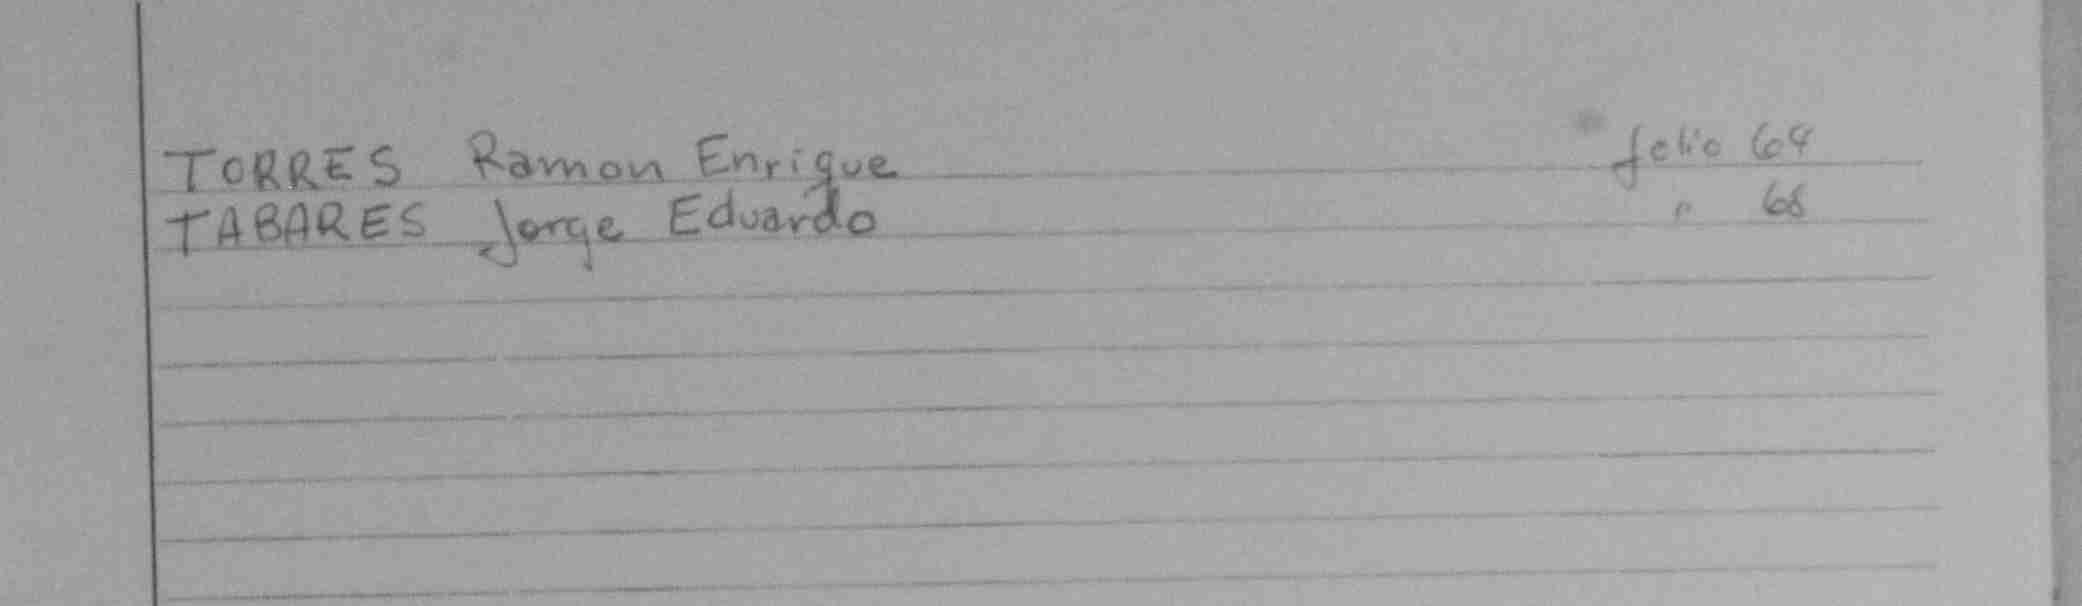 TORRES Ramon Enrique folio 64
TABARES Jorge Eduardo " 68